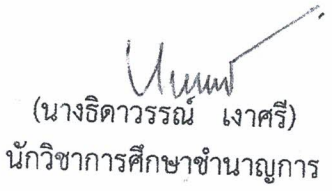 (นางธิดาวรรณ์ เงาศรี)
นักวิชาการศึกษาชำนาญการ